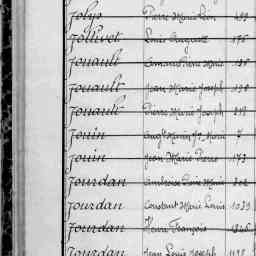 Jolys Pierre Marie Léon 499
Jollivet Louis Auguste 176
Jouault Armand Pierre Marie
Jouault Jean Marie Joseph 130
Jouault Pierre Marie Joseph
Jouin Marie 7
Jouin Jean Marie Pierre 173
Jourdan Ambroise Pierre Marie 202
Jourdan Constant Marie Louis 1029
Jourdan Pierre François
Jourdan Jean Louis Joseph